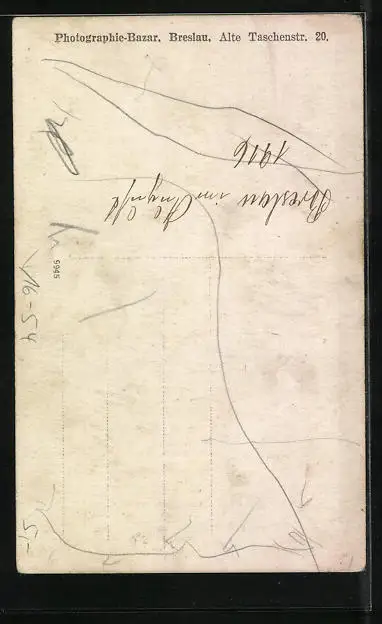 Photographie-Bazar, Breslau, Alte Taschenstr. 20.
Breslau im August
1916
9945
V16-54